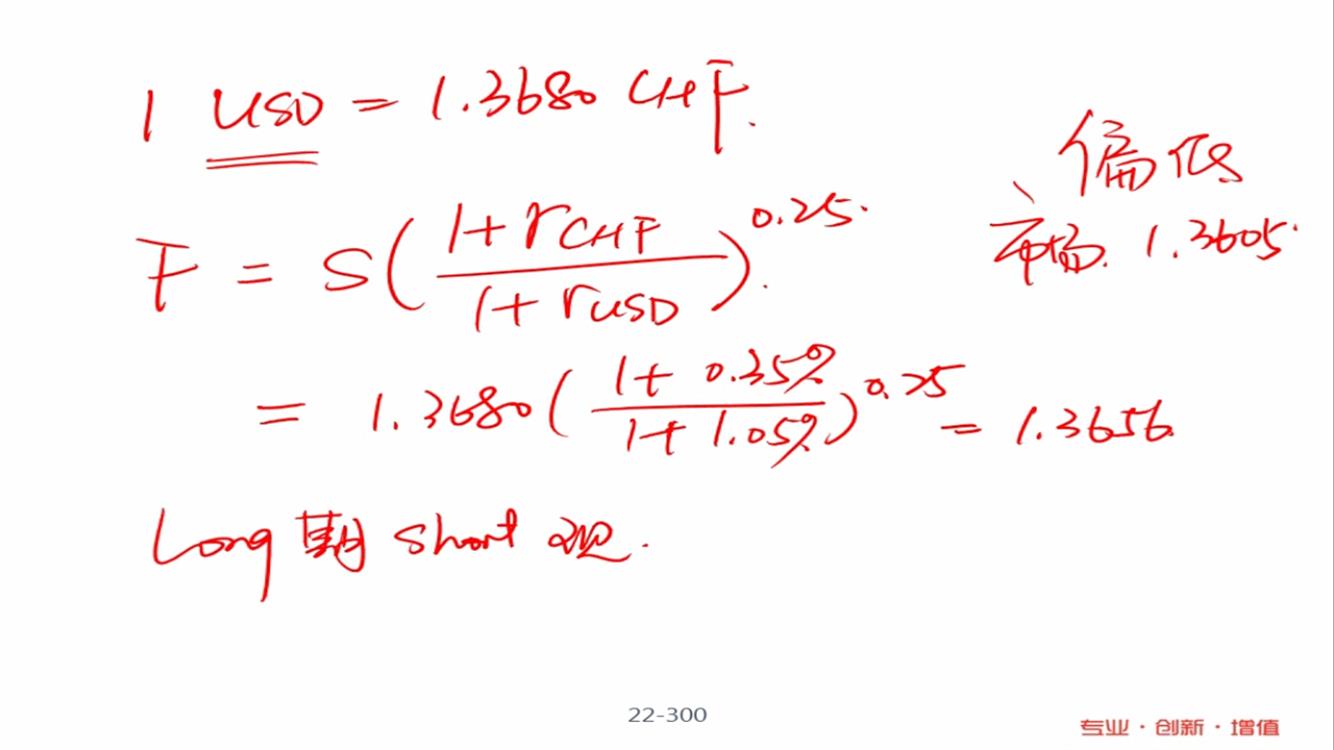 1 USD = 1.3680 CHF.
偏低
市场. 1.3605.
F = S(\frac{1+rCHF}{1+rUSD})^{0.25}.
= 1.3680(\frac{1+0.35%}{1+1.05%})^{0.25} = 1.3656.
Long 期 short 现.
22-300
专业·创新·增值